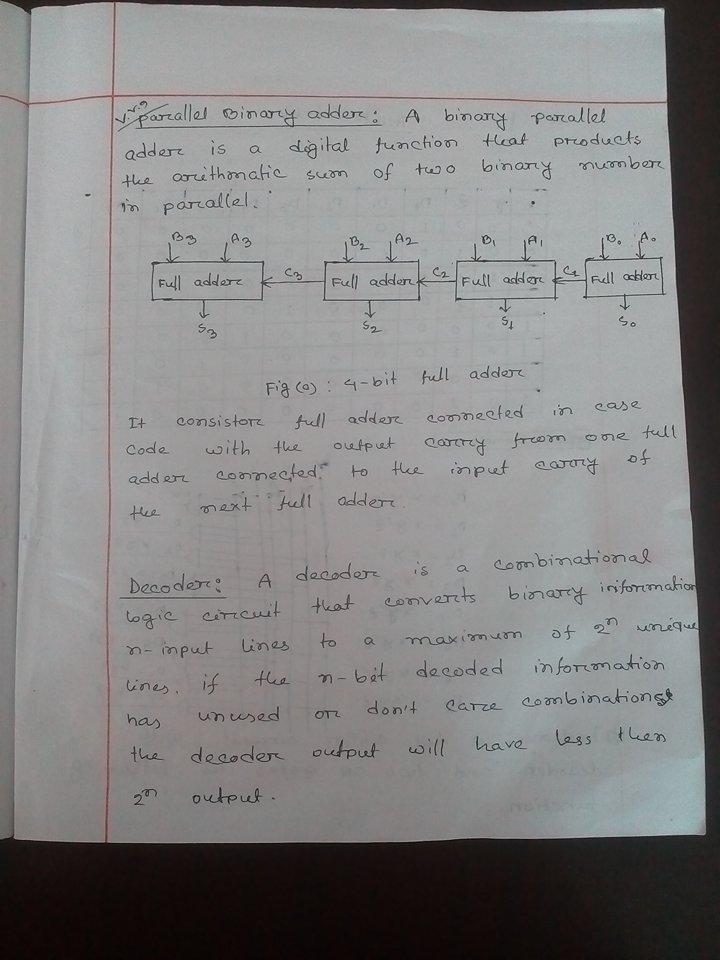 v.v.? Parallel Binary adder: A binary parallel
adder is a digital function that products
the arithmatic sum of two binary number
in parallel.
B3 A3 B2 A2 B1 A1 B0 A0
Full adder C3 Full adder C2 Full adder C1 Full adder
S3 S2 S1 S0
Fig (a) : 4-bit full adder
It consistor full adder connected in case
code with the output carry from one full
adder connected to the input carry of
the next full adder.
Decoder: A decoder is a combinational
logic circuit that converts binary information
n-input lines to a maximum of 2ⁿ unique
lines. if the n-bit decoded information
has unused or don't care combinations
the decoder output will have less then
2ⁿ output.